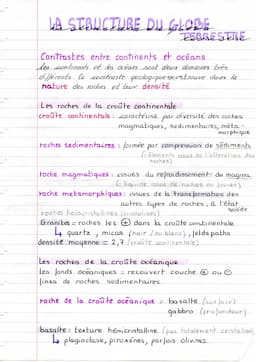 LA STRUCTURE DU GLOBE
TERRESTRE
Contrastes entre continents et océans
Les continents et les océans sont deux domaines très
différents. Le contraste géologique se retrouve dans la
nature des roches et leur densité
Les roches de la croûte continentale
croûte continentale : caractérisé par diversité des roches
magmatiques, sedimentaires, méta-
morphique
roches sedimentaires : formée par compression de sédiments
(éléments issus de l'altération des
roches)
roche magmatiques : issues du refroidissement du magma
(liquide issue de roches en fusion)
roche metamorphiques : issues de la transformation des
autres types de roches, à l'état
solide
roches holocristallines (cristallisés)
Granite = roches les ⊕ dans la croûte continentale
↳ quartz, micas (noir / ou blanc), feldspaths
densité moyenne = 2,7 (croûte continentale)
Les roches de la croûte océanique
les fonds océaniques : recouvert couche ⊕ ou ⊖
fines de roches sedimentaires.
roche de la croûte océanique = basalte (surface)
gabbro (profondeur)
basalte : texture hémicristalline (pas totalement cristalisé)
↳ plagioclase, piroxènes, parfois olivines.